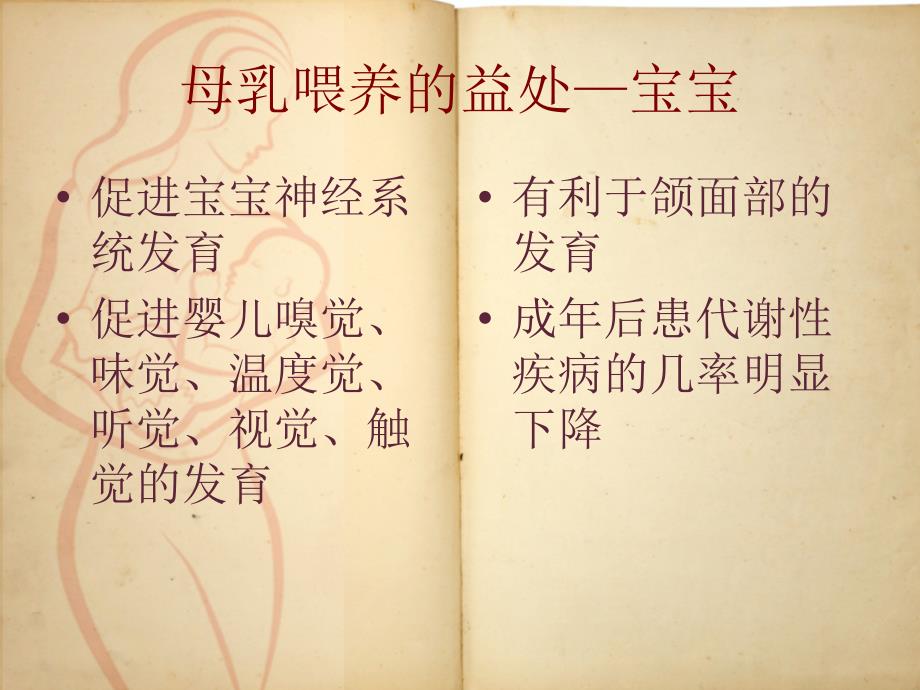 母乳喂养的益处—宝宝
• 促进宝宝神经系
统发育
• 促进婴儿嗅觉、
味觉、温度觉、
听觉、视觉、触
觉的发育
• 有利于颌面部的
发育
• 成年后患代谢性
疾病的几率明显
下降